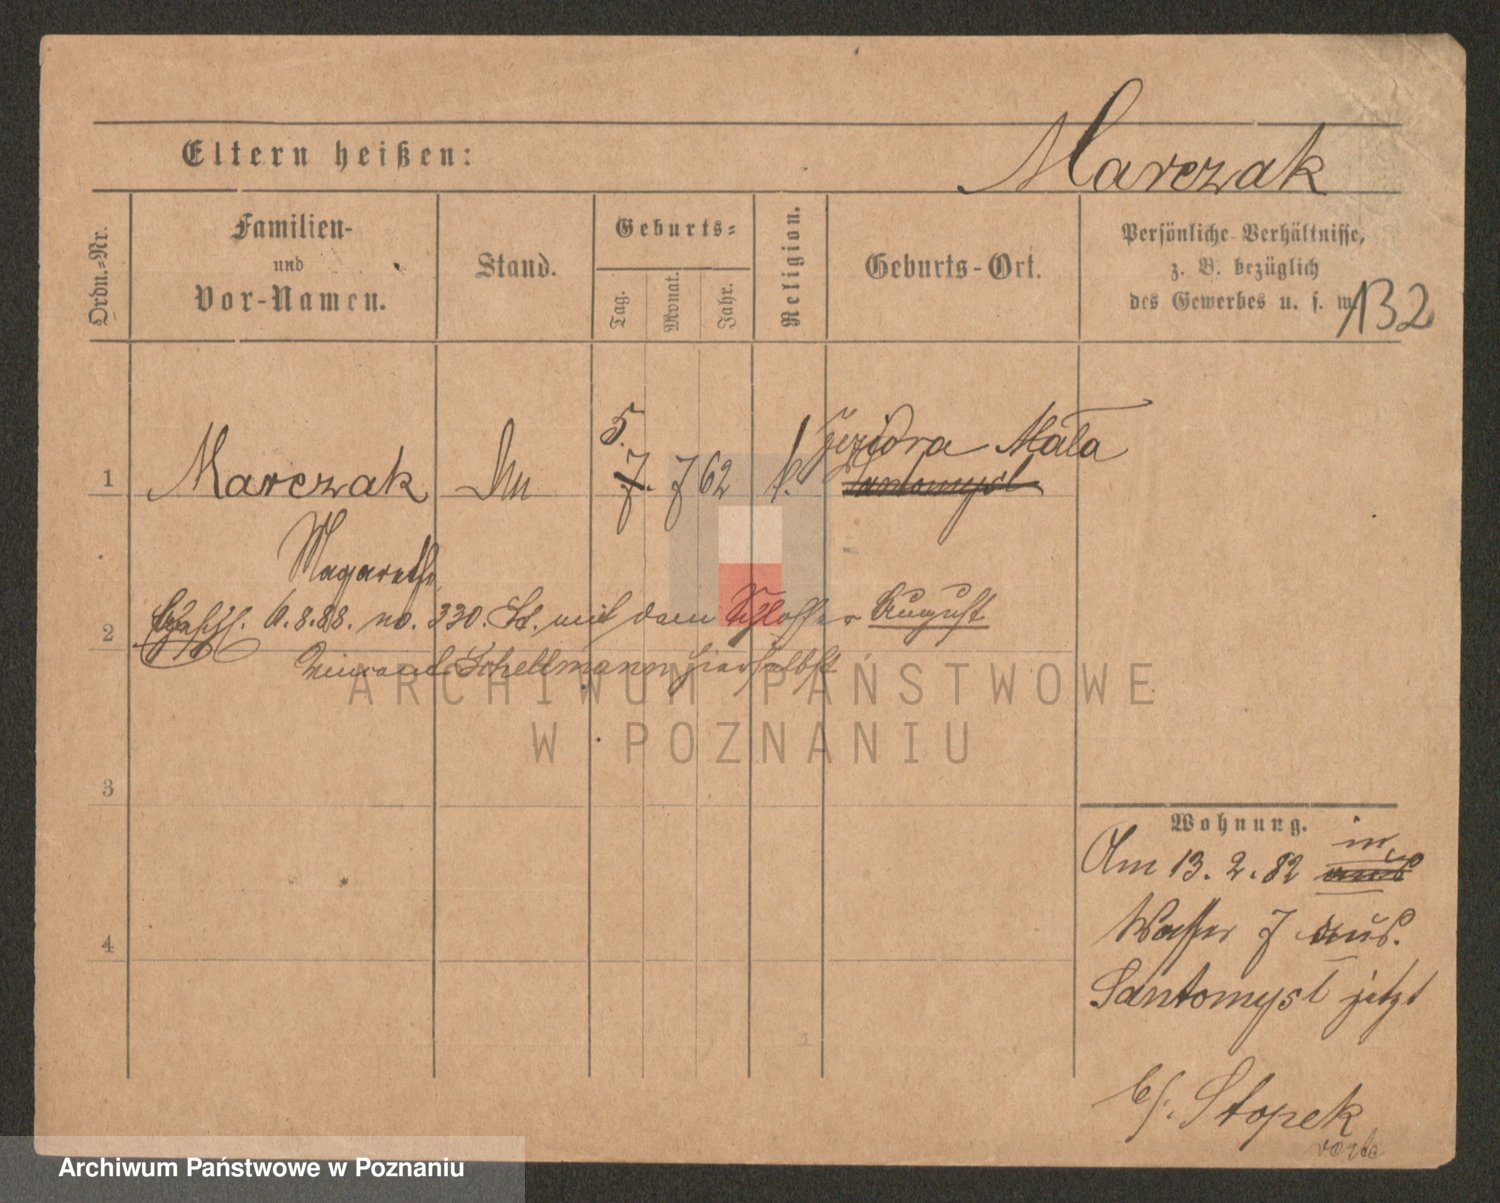 Marczak
Eltern heißen:
Ordn.-Nr.
Familien-
und
Vor-Namen.
Stand.
Geburts-
Tag.
Monat.
Jahr.
Religion.
Geburts-Ort.
Persönliche Verhältnisse,
z. B. bezüglich
des Gewerbes u. s. w.
132
5.
Jeziora Mała
1 Marczak 7. 7 62 k. Santomysl
Magarethe
2 6.8.88. no. 330. St. mit dem Schlosser August
Schellmann hierselbst
ARCHIWUM PAŃSTWOWE
W POZNANIU
3
4
Wohnung.
in
Am 13. 2. 82 aus
Wasser 7 aus
Santomysl jetzt
b/. Stopek
Archiwum Państwowe w Poznaniu